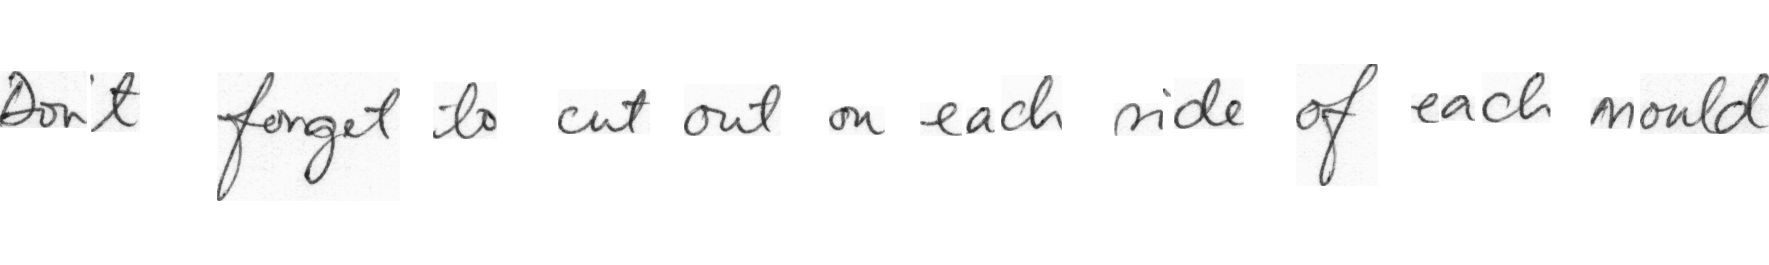 Don't forget to cut out on each side of each mould